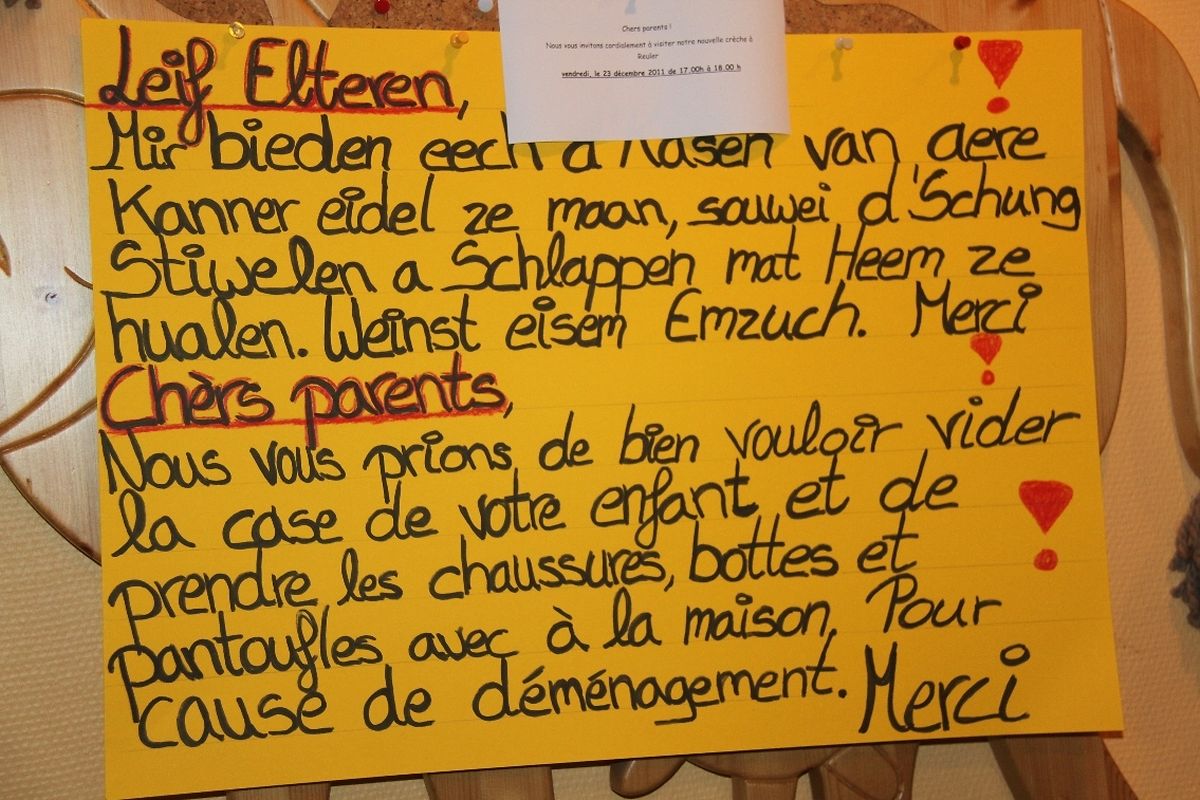 Chers parents !
Nous vous invitons cordialement à visiter notre nouvelle crèche à
Reuler
vendredi, le 23 décembre 2011 de 17.00h à 18.00 h
Leif Elteren,
Mir bieden eech d'Kasen van aere
Kanner eidel ze maan, souwei d'Schung
Stiwelen a Schlappen mat Heem ze
hualen. Weinst eisem Emzuch. Merci !
Chèrs parents,
Nous vous prions de bien vouloir vider
la case de votre enfant et de
prendre les chaussures, bottes et
pantoufles avec à la maison, Pour
cause de déménagement. Merci